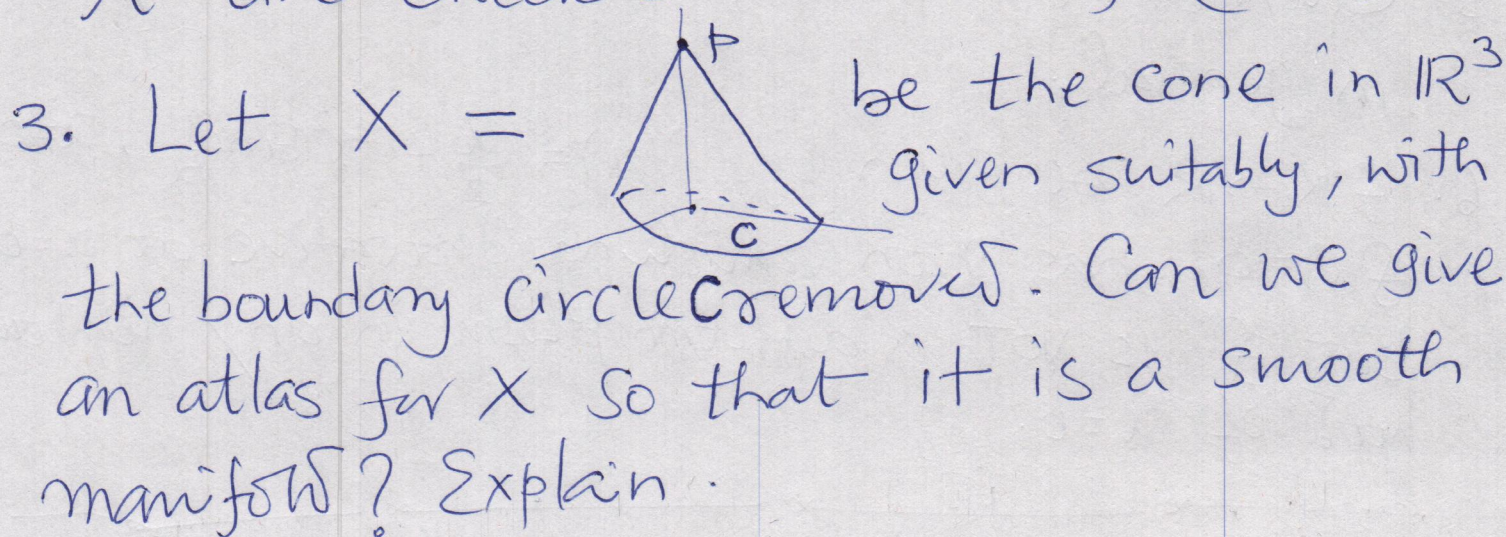 3. Let X = P be the cone in ℝ³
C given suitably, with
the boundary circle C removed. Can we give
an atlas for X so that it is a smooth
manifold? Explain.